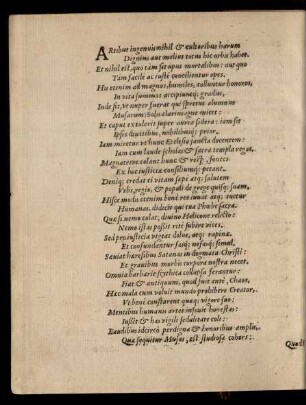 ARtibus ingenuis nihil & cultoribus harum
Dignius aut melius totus hic orbis habet.
Et nihil est, quo tam sit opus mortalibus: aut quo
Tam facile ac iustè concilientur opes.
Hi etenim ad magnos, humiles, tolluntur honores,
In vita summos accipiuntque gradus,
Inde sit, ut nuper fuerat qui spretus alumnus
Musarum: Solii clarius igne micet:
Et caput extulerit super aurea sidera: iam sit
Ipsis divitibus, nobilibusque prior.
Iam miretur et hunc Ecclesia sancta docentem:
Iam cum laude scholas & sacra templa regat.
Magnates colant hunc & fontes
Ex huc iustitiae consiliumque petant.
Denique credat ei vitam saepe atque salutem
Urbs, regio, & populi de grege quisque suam.
Hisce modis etenim bonè res iuvat atque tuetur
Humanas, didicit qui tua Phoebe sacra.
Quae si nemo colat, divino Helicone relicto:
Nemo istas possit ritè subire vices.
Sed pro iustitia vigeat dolus, atque rapinae.
Et confundantur fasque nefasque simul,
Saeviat haeresibus Satanas in dogmata Christi:
Et gravibus morbis corpora nostra necet.
Omnia barbarie scythica collapsa ferantur:
Fiat & antiquum, quod fuit antè, Chaos,
Hac mala cum voluit mundo prohibere Creator,
Ut benè constarent quaeque vigore suo:
Mentibus humanis artes insevit honestas:
Iussit & has vigili sedulitate coli:
Laudibus idcirco perdigna & honoribus amplis,
Quae sequitur Musas, est studiosa cohors:
Quod